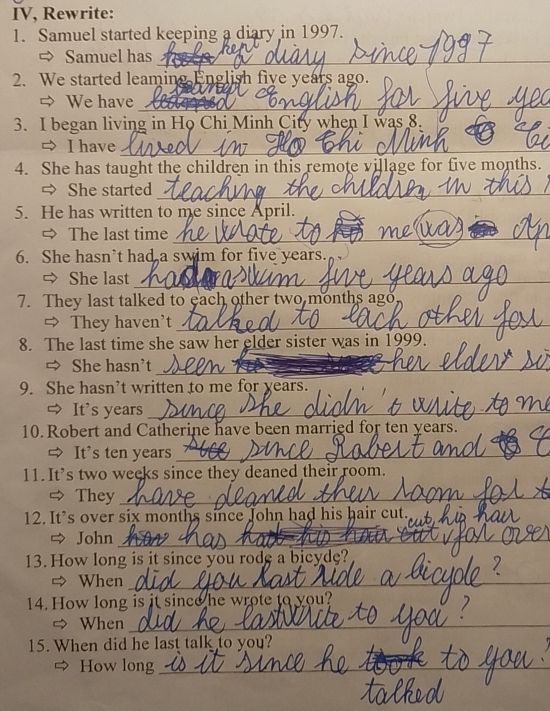 IV, Rewrite:
1. Samuel started keeping a diary in 1997.
⇨ Samuel has kept diary since 1997
2. We started leaming English five years ago.
⇨ We have English for five yea
3. I began living in Ho Chi Minh City when I was 8.
⇨ I have lived in Ho Chi Minh
4. She has taught the children in this remote village for five months.
⇨ She started teaching the children in this
5. He has written to me since April.
⇨ The last time he wrote to me was Ap
6. She hasn't had a swim for five years.
⇨ She last had a swim five years ago
7. They last talked to each other two months ago.
⇨ They haven't talked to each other for
8. The last time she saw her elder sister was in 1999.
⇨ She hasn't seen her elder si
9. She hasn't written to me for years.
⇨ It's years since she didn't write to me
10. Robert and Catherine have been married for ten years.
⇨ It's ten years since Robert and C
11. It's two weeks since they deaned their room.
⇨ They have deaned their room for t
12. It's over six months since John had his hair cut.
cut his hair
⇨ John has for over
13. How long is it since you rode a bicyde?
⇨ When did you last ride a bicycle?
14. How long is it since he wrote to you?
⇨ When did he last write to you?
15. When did he last talk to you?
⇨ How long is it since he to you?
talked